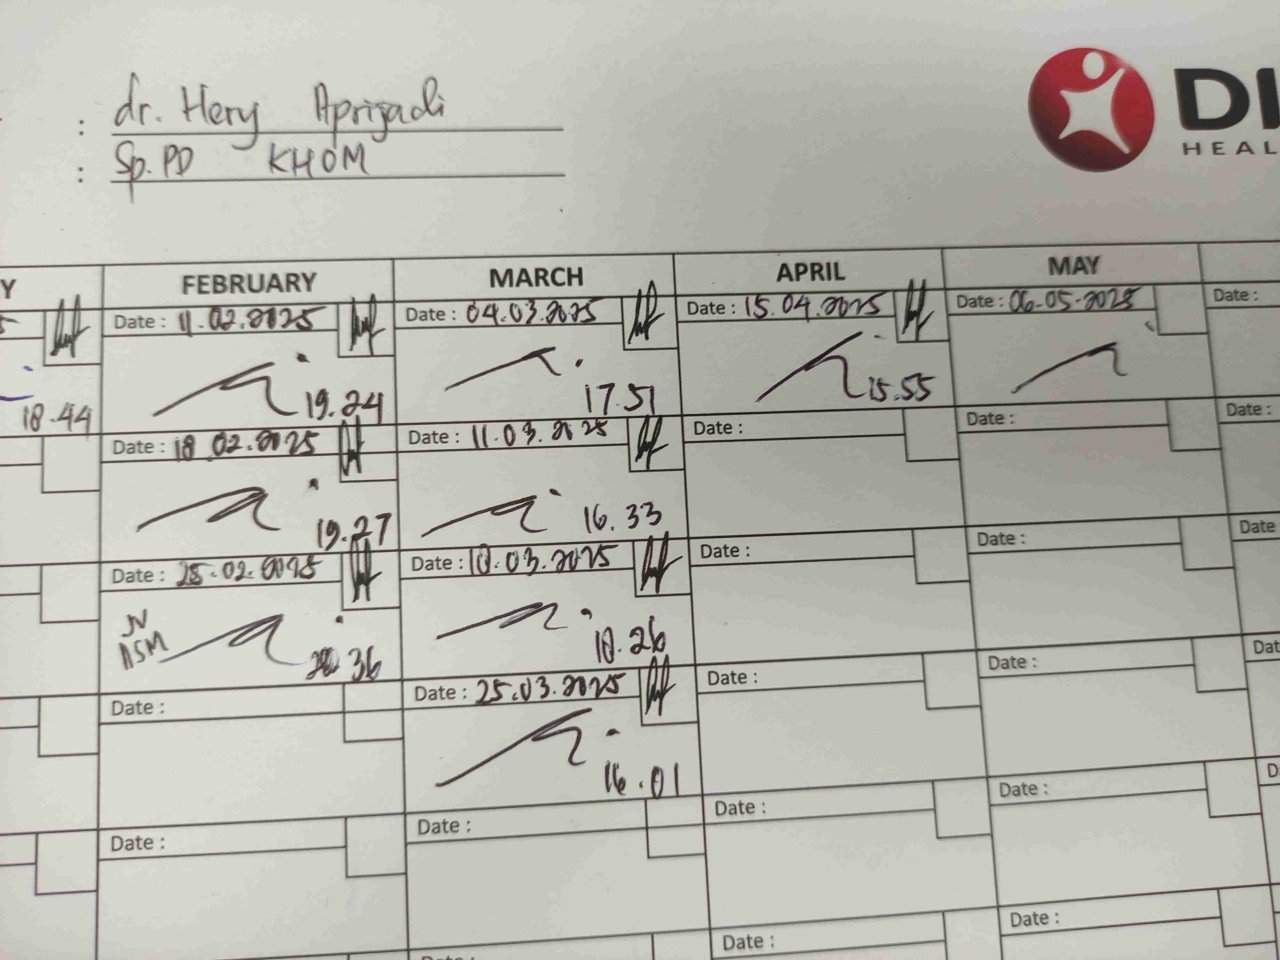 : dr. Hery Apriyadi
: Sp.PD KHOM
DI
HEAL
Y FEBRUARY MARCH APRIL MAY
5 Date : 11.02.2025 Date : 04.03.2025 Date : 15.04.2025 Date : 06.05.2025 Date :
18.44 19.24 17.51 15.55
Date : 18 02.2025 Date : 11.03.2025 Date : Date : Date :
19.27 16.33
Date : 25.02.2025 Date : 18.03.2025 Date : Date : Date
ASM 36 18.26
Date : Date : 25.03.2025 Date : Date : Dat
16.01
Date : Date : Date : Date : D
Date : Date :